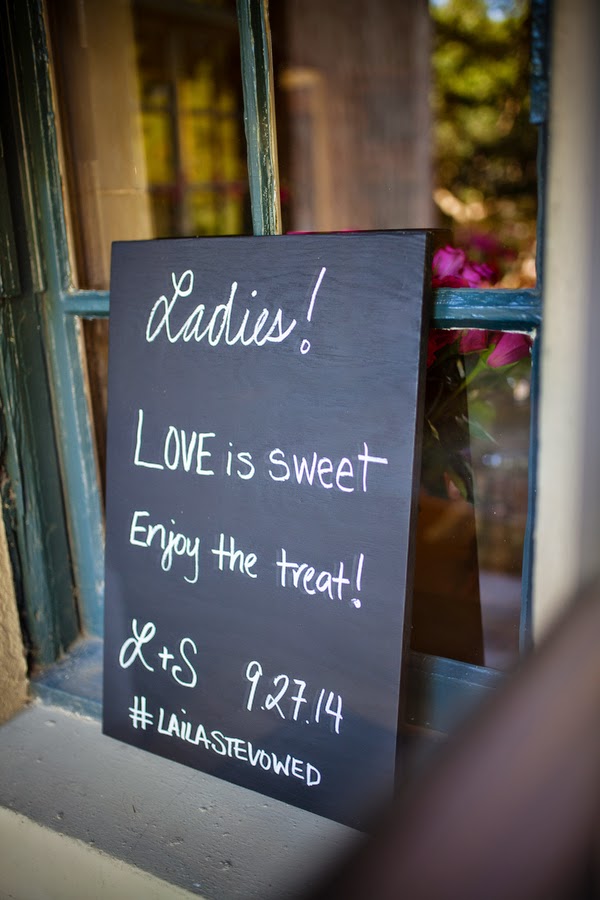 Ladies!
LOVE is sweet
Enjoy the treat!
L + S 9.27.14
#LAILASTEVOWED